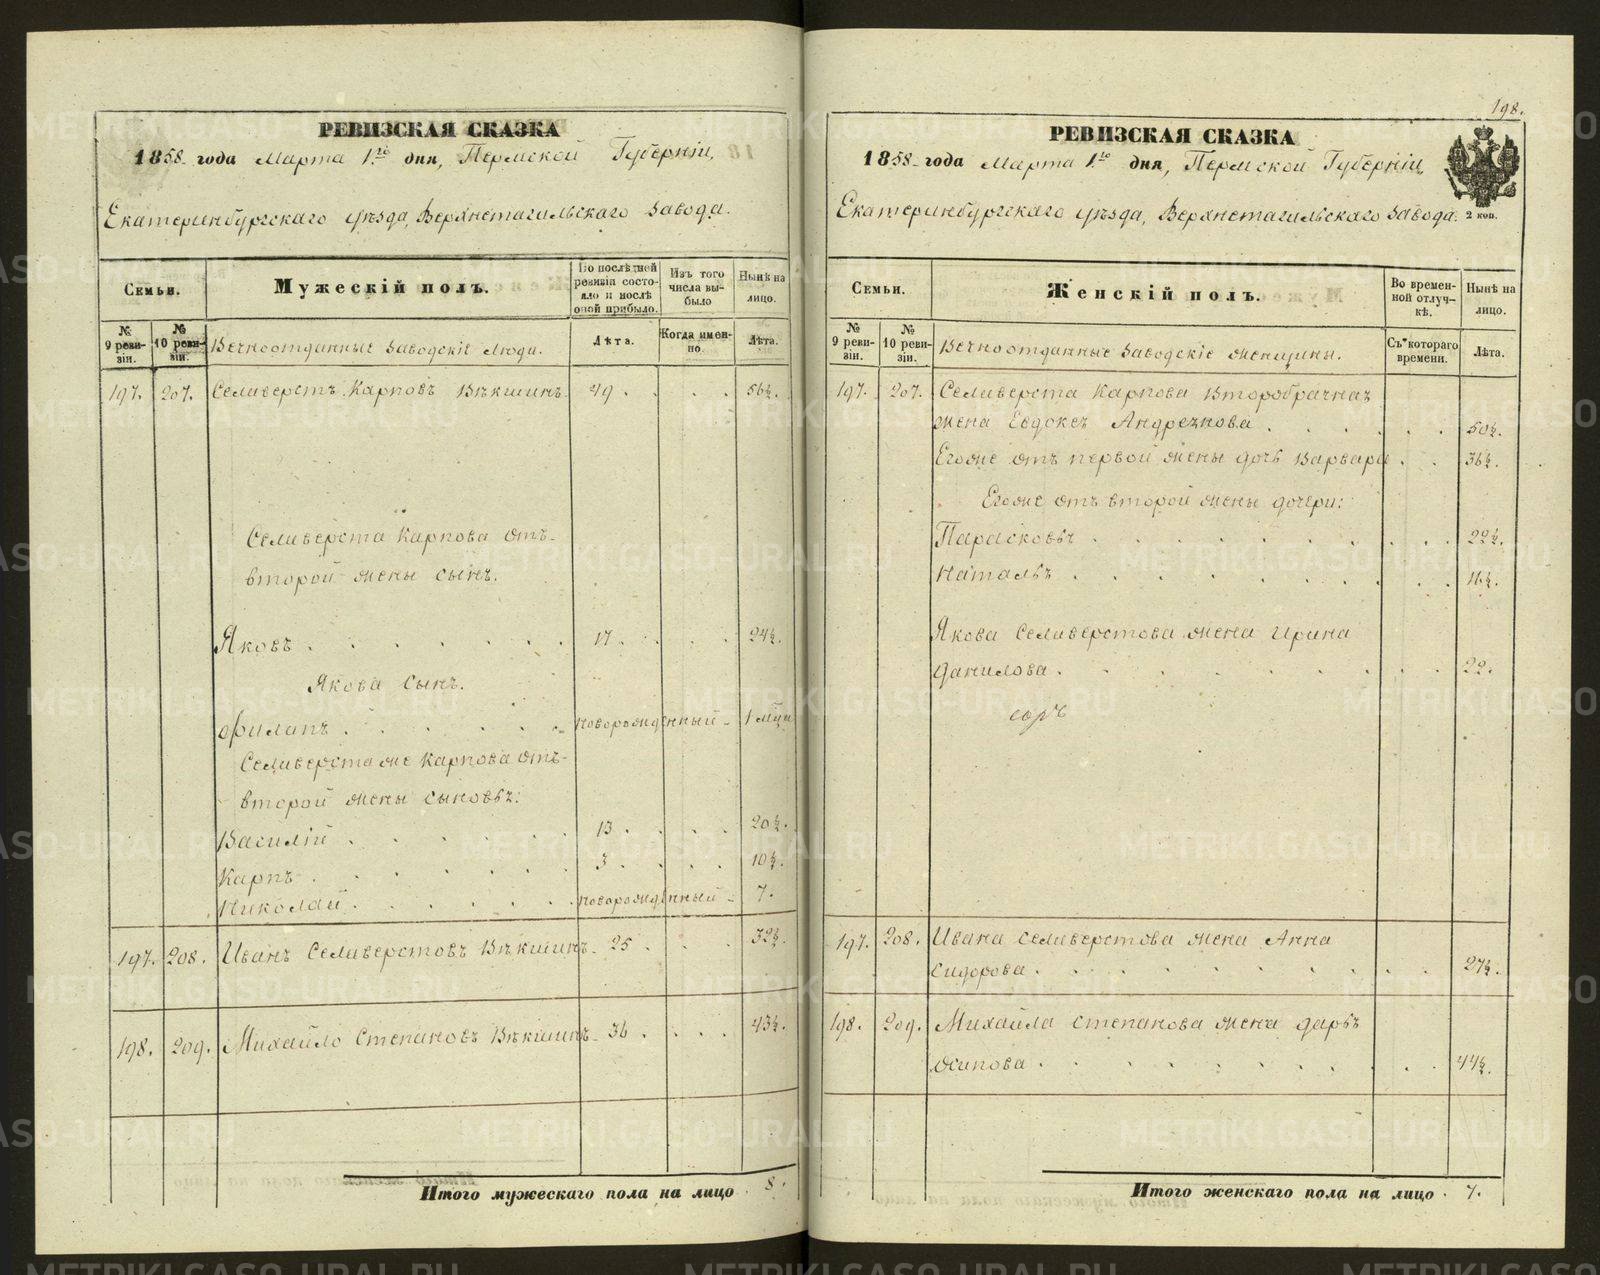 РЕВИЗСКАЯ СКАЗКА
1858 года Марта 1го дня, Пермской Губерніи,
Екатеринбургскаго уѣзда, Верхнетагильскаго завода.
Семьи.
Мужескій полъ.
По послѣдней ревизіи состояло и послѣ оной прибыло.
Изъ того числа выбыло
Нынѣ на лицо.
№ 9 ревизіи.
№ 10 ревизіи.
Вечноотданные заводскіе люди.
Лѣта.
Когда именно.
Лѣта.
197. 207. Селиверстъ Карповъ Вѣкшинъ 49 . . . . 56½.
Селиверста Карпова отъ
второй жены сынъ.
Яковъ . . . . . . 17 . . . . 24½.
Якова сынъ.
Филипъ . . . . . новорожденный - 1 мѣц
Селиверста же Карпова отъ
второй жены сыновья:
Василій . . . . . 13 . . . . 20½.
Карпъ . . . . . . 3 . . . . 10½.
Николай . . . . . новорожденный - 7.
197. 208. Иванъ Селиверстовъ Вѣкшинъ 25 . . . 32½.
198. 209. Михайло Степановъ Вѣкшинъ 36 . . . . 43½.
Итого мужескаго пола на лицо . 8.
198.
РЕВИЗСКАЯ СКАЗКА
1858 года Марта 1го дня, Пермской Губерніи,
Екатеринбургскаго уѣзда, Верхнетагильскаго завода.
2 коп.
Семьи.
Женскій полъ.
Во временной отлучкѣ.
Нынѣ на лицо.
№ 9 ревизіи.
№ 10 ревизіи.
Вечноотданные заводскіе женщины.
Съ котораго времени.
Лѣта.
197. 207. Селиверста Карпова второбрачная
жена Евдокея Андреянова . . . . . . 50½.
Егоже отъ первой жены дочь Варвара . . 36½.
Егоже отъ второй жены дочери:
Парасковья . . . . . . . . . 22½.
Наталья . . . . . . . . . 16½.
Якова Селиверстова жена Ирина
Данилова . . . . . . . . . 22.
197. 208. Ивана Селиверстова жена Анна
Сидорова . . . . . . . . . 27½.
198. 209. Михайла Степанова жена Дарья
Осипова . . . . . . . . . 44½.
Итого женскаго пола на лицо . 7.
METRIKI.GASO-URAL.RU